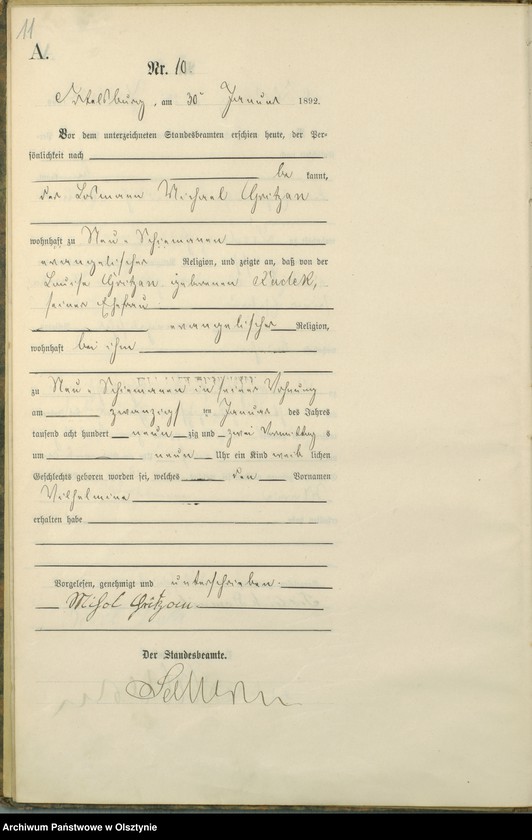 11
A.
Nr. 10.
Ortelsburg, am 30. Januar 1892.
Vor dem unterzeichneten Standesbeamten erschien heute, der Per-
sönlichkeit nach
be kannt,
der Losmann Michael Gritzan
wohnhaft zu Neu-Schiemanen
evangelischer Religion, und zeigte an, daß von der
Louise Gritzan geborenen
seiner Ehefrau
evangelischer Religion,
wohnhaft bei ihm
zu Neu-Schiemanen in seiner Wohnung
am zwanzigsten Januar des Jahres
tausend acht hundert neun zig und zwei Vormittags
um neun Uhr ein Kind weib lichen
Geschlechts geboren worden sei, welches den Vornamen
Wilhelmine
erhalten habe
Vorgelesen, genehmigt und unterschrieben.
Mihol Gritzan
Der Standesbeamte.
Archiwum Państwowe w Olsztynie